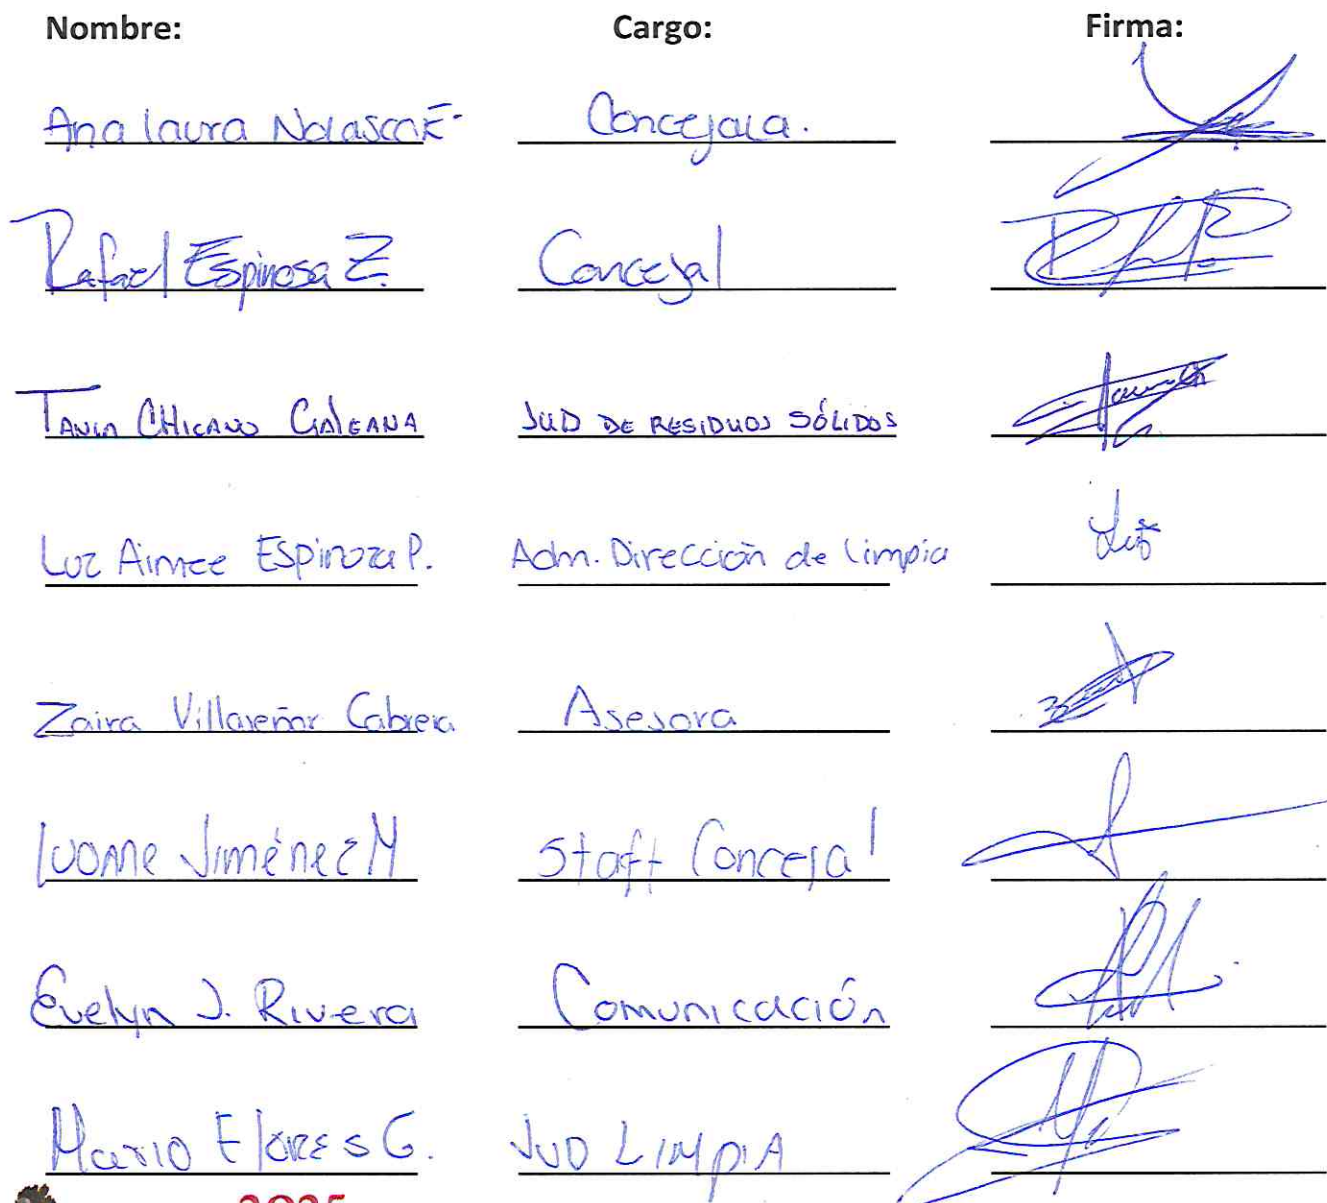 Nombre: Cargo: Firma:
Ana laura Nolasco E. Concejala.
Rafael Espinosa Z. Concejal
TANIA CHICANO GALEANA JUD DE RESIDUOS SÓLIDOS
Luz Aimee Espinoza P. Adm. Dirección de limpia
Zaira Villaseñor Cabrera Asesora
Ivonne Jiménez M Staff Concejal
Evelyn J. Rivera Comunicación
Mario Flores G. JUD LIMPIA
2025